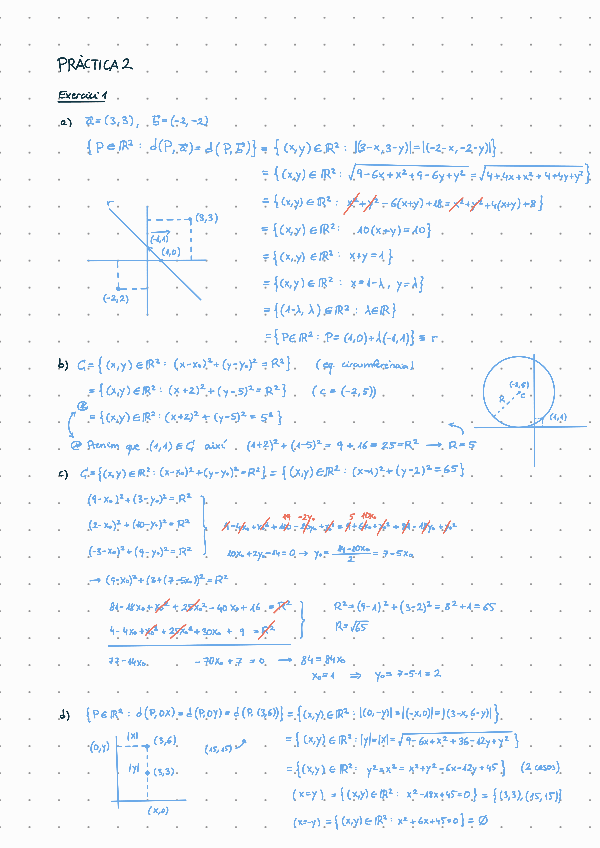 PRÀCTICA 2
Exercici 1
a) a⃗ = (3,3), b⃗ = (-2,-2)
{P∈ℝ² : d(P,a⃗) = d(P,b⃗)} = {(x,y)∈ℝ² : |(3-x,3-y)| = |(-2-x,-2-y)|}
= {(x,y)∈ℝ² : √(9-6x+x²+9-6y+y²) = √(4+4x+x²+4+4y+y²)}
= {(x,y)∈ℝ² : x²+y²-6(x+y)+18 = x²+y²+4(x+y)+8}
= {(x,y)∈ℝ² : 10(x+y) = 10}
= {(x,y)∈ℝ² : x+y = 1}
= {(x,y)∈ℝ² : x = 1-λ, y = λ}
= {(1-λ, λ)∈ℝ² : λ∈ℝ}
= {P∈ℝ² : P = (1,0)+λ(-1,1)} ≡ r
(3,3)
(-1,1)
(1,0)
(-2,2)
b) C = {(x,y)∈ℝ² : (x-x₀)²+(y-y₀)² = R²} (eq. circumferència)
= {(x,y)∈ℝ² : (x+2)²+(y-5)² = R²} (c = (-2,5))
= {(x,y)∈ℝ² : (x+2)²+(y-5)² = 5²}
Atenem que (1,1)∈C així (1+2)²+(1-5)² = 9+16 = 25 = R² → R = 5
(-2,5)
R
c
(1,1)
c) C = {(x,y)∈ℝ² : (x-x₀)²+(y-y₀)² = R²} = {(x,y)∈ℝ² : (x-1)²+(y-2)² = 65}
(9-x₀)²+(3-y₀)² = R²
(2-x₀)²+(10-y₀)² = R²
(-3-x₀)²+(9-y₀)² = R²
10x₀+2y₀-14 = 0 → y₀ = (14-10x₀)/2 = 7-5x₀
→ (9-x₀)²+(3+(7-5x₀))² = R²
81-18x₀+x₀²+25x₀²-40x₀+16 = R²
4-4x₀+x₀²+25x₀²+30x₀+9 = R²
R² = (9-1)²+(3-2)² = 8²+1 = 65
R = √65
77-14x₀ -70x₀+7 = 0 → 84 = 84x₀
x₀ = 1 ⇒ y₀ = 7-5·1 = 2
d) {P∈ℝ² : d(P,OX) = d(P,OY) = d(P,(3,6))} = {(x,y)∈ℝ² : |(0,-y)| = |(-x,0)| = |(3-x,6-y)|}
= {(x,y)∈ℝ² : |y| = |x| = √(9-6x+x²+36-12y+y²)}
= {(x,y)∈ℝ² : y² = x² = x²+y²-6x-12y+45} (2 casos)
(x=y) = {(x,y)∈ℝ² : x²-18x+45 = 0} = {(3,3),(15,15)}
(x=-y) = {(x,y)∈ℝ² : x²+6x+45 = 0} = ∅
(0,y)
|x|
(3,6)
|y|
(3,3)
(x,0)
(15,15) ✓